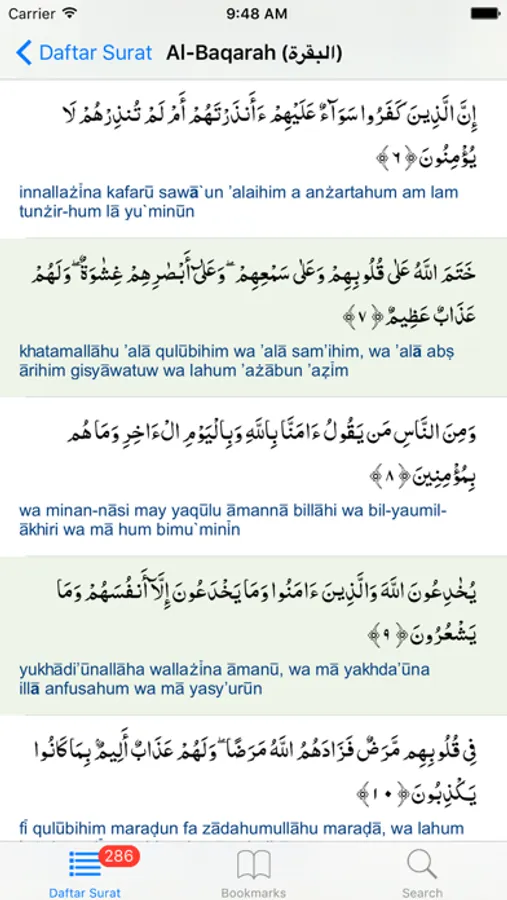 Carrier 9:48 AM
Daftar Surat Al-Baqarah (البقرة)
إِنَّ الَّذِينَ كَفَرُوا سَوَآءٌ عَلَيْهِمْ ءَأَنذَرْتَهُمْ أَمْ لَمْ تُنذِرْهُمْ لَا
يُؤْمِنُونَ ﴿٦﴾
innallażīna kafarū sawā`un ’alaihim a anżartahum am lam
tunżir-hum lā yu`minūn
خَتَمَ اللَّهُ عَلَىٰ قُلُوبِهِمْ وَعَلَىٰ سَمْعِهِمْ ۖ وَعَلَىٰٓ أَبْصَٰرِهِمْ غِشَٰوَةٌ ۖ وَلَهُمْ
عَذَابٌ عَظِيمٌ ﴿٧﴾
khatamallāhu ’alā qulūbihim wa ’alā sam’ihim, wa ’alā abṣ
ārihim gisyāwatuw wa lahum ’ażābun ’aẓīm
وَمِنَ النَّاسِ مَن يَقُولُ ءَامَنَّا بِاللَّهِ وَبِالْيَوْمِ الْءَاخِرِ وَمَا هُم
بِمُؤْمِنِينَ ﴿٨﴾
wa minan-nāsi may yaqūlu āmannā billāhi wa bil-yaumil-
ākhiri wa mā hum bimu`minīn
يُخَٰدِعُونَ اللَّهَ وَالَّذِينَ ءَامَنُوا وَمَا يَخْدَعُونَ إِلَّآ أَنفُسَهُمْ وَمَا
يَشْعُرُونَ ﴿٩﴾
yukhādi’ūnallāha wallażīna āmanū, wa mā yakhda’ūna
illā anfusahum wa mā yasy’urūn
فِي قُلُوبِهِم مَّرَضٌ فَزَادَهُمُ اللَّهُ مَرَضًا ۖ وَلَهُمْ عَذَابٌ أَلِيمٌ بِمَا كَانُوا
يَكْذِبُونَ ﴿١٠﴾
fī qulūbihim maraḍun fa zādahumullāhu maraḍā, wa lahum
286
Daftar Surat Bookmarks Search